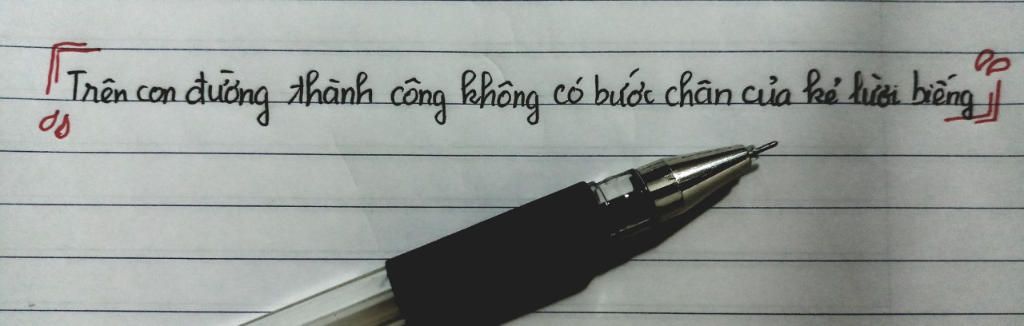 Trên con đường thành công không có bước chân của kẻ lười biếng